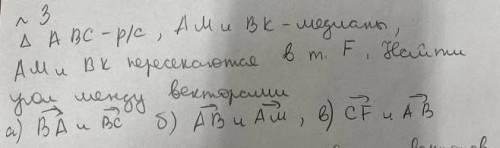 № 3
Δ ABC - р/с, AM и BK - медианы,
AM и BK пересекаются в т. F. Найти
угол между векторами
а) BA и BC б) AB и AM, в) CF и AB